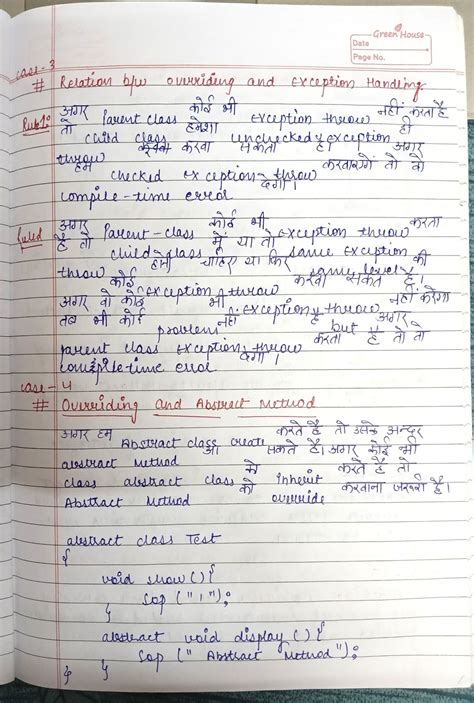 Green House
Date
Page No.
case-3
# Relation b/w overriding and Exception Handling.
Rule1: अगर Parent class कोई भी Exception throw नहीं करता है
तो child class हमेशा unchecked exception ही
throw करवा सकता है। अगर
हम checked exception throw करवाएंगे तो वो
compile-time error देगा।
Rule2 अगर Parent-class कोई भी exception throw करता
है तो child class में या तो same exception
throw होनी चाहिए या फिर same level की
कोई exception throw करवा सकते हैं।
अगर वो कोई भी exception throw नहीं करेगा
तब भी कोई problem नहीं है but अगर
parent class exception throw करता है तो वो
compile-time error देगा।
case-4
# Overriding and Abstract Method
अगर हम Abstract class create करते हैं तो उसके अन्दर
abstract method आ सकते हैं। अगर कोई भी
class abstract class को inherit करते हैं तो
Abstract Method को override करवाना जरूरी है।
abstract class Test
{
void show(){
Sop ("1");
}
abstract void display(){
Sop ("Abstract Method");
} }